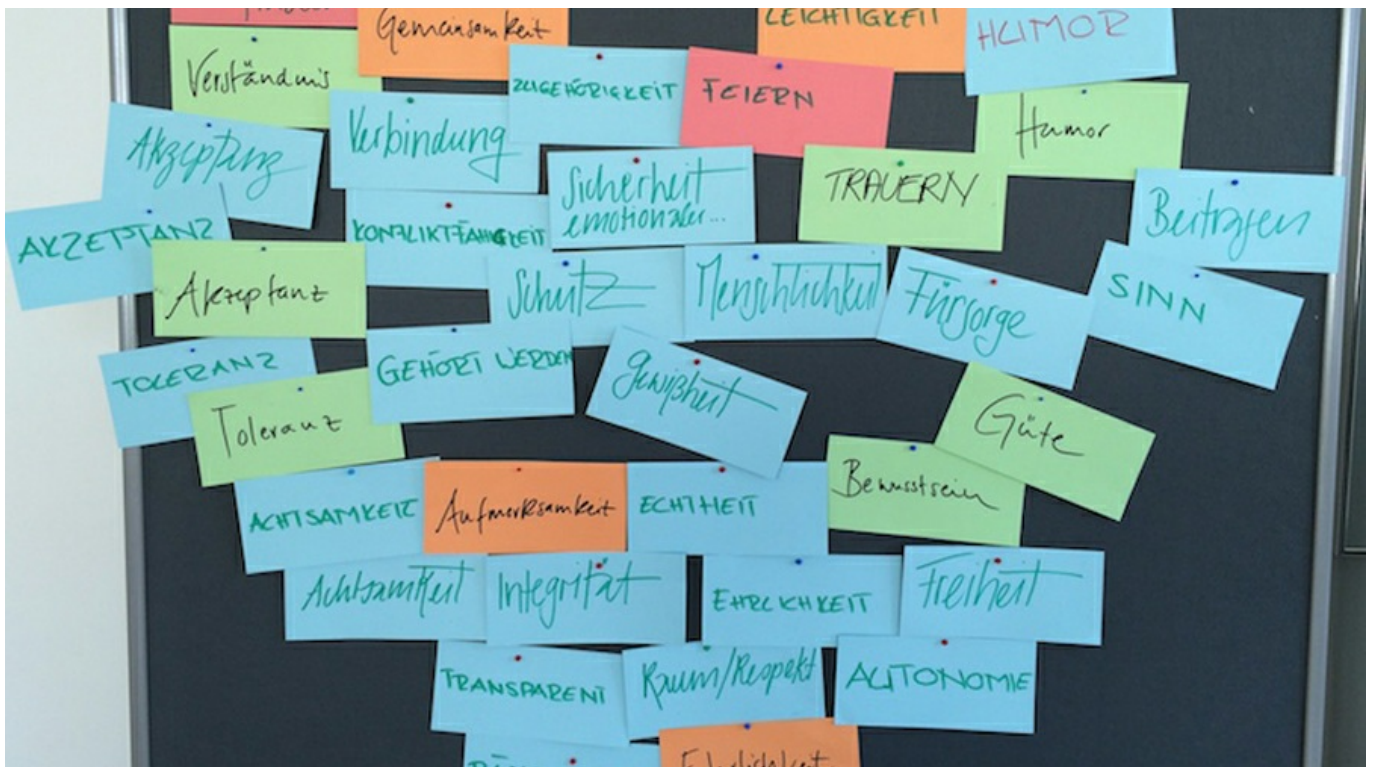 Gemeinsamkeit
LEICHTIGKEIT
HUMOR
Verständnis
ZUGEHÖRIGKEIT
FEIERN
Humor
Akzeptanz
Verbindung
Sicherheit
emotionaler...
TRAUERN
Beitragen
AKZEPTANZ
KONFLIKTFÄHIGKEIT
Akzeptanz
Schutz
Menschlichkeit
Fürsorge
SINN
TOLERANZ
GEHÖRT WERDEN
Gewißheit
Toleranz
Güte
ACHTSAMKEIT
Aufmerksamkeit
ECHTHEIT
Bewusstsein
Achtsamkeit
Integrität
EHRLICHKEIT
Freiheit
TRANSPARENT
Raum/Respekt
AUTONOMIE
Ehrlichkeit